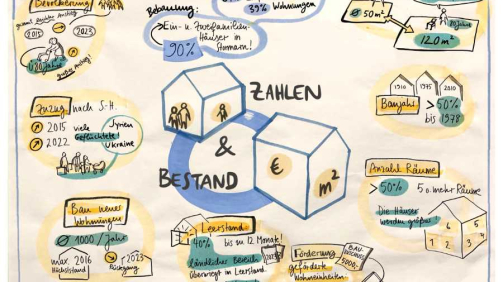 Bevölkerung
2015
2023
Bebauung:
39% Wohnungen
Ein- u. Zweifamilien-
Häuser in
Stormarn!
90%
Ø 50m²
120m²
ZAHLEN
&
BESTAND
€
m²
Zuzug nach S-H.
2015 viele
Geflüchtete!
2022
Syrien
Ukraine
1910 1975 2010
Baujahr
> 50%
bis 1978
Anzahl Räume
> 50% 5 o. mehr Räume
Die Häuser
werden größer!
6
5
1 2 3 4
Bau neuer
Wohnungen
Ø 1000 / Jahr
max. 2016
Höchststand
2023
Rückgang
Leerstand
40% bis zu 12 Monate!
Ländlicher Bereich
überwiegt im Leerstand.
Förderung
geförderte
Wohneinheiten
BAU-